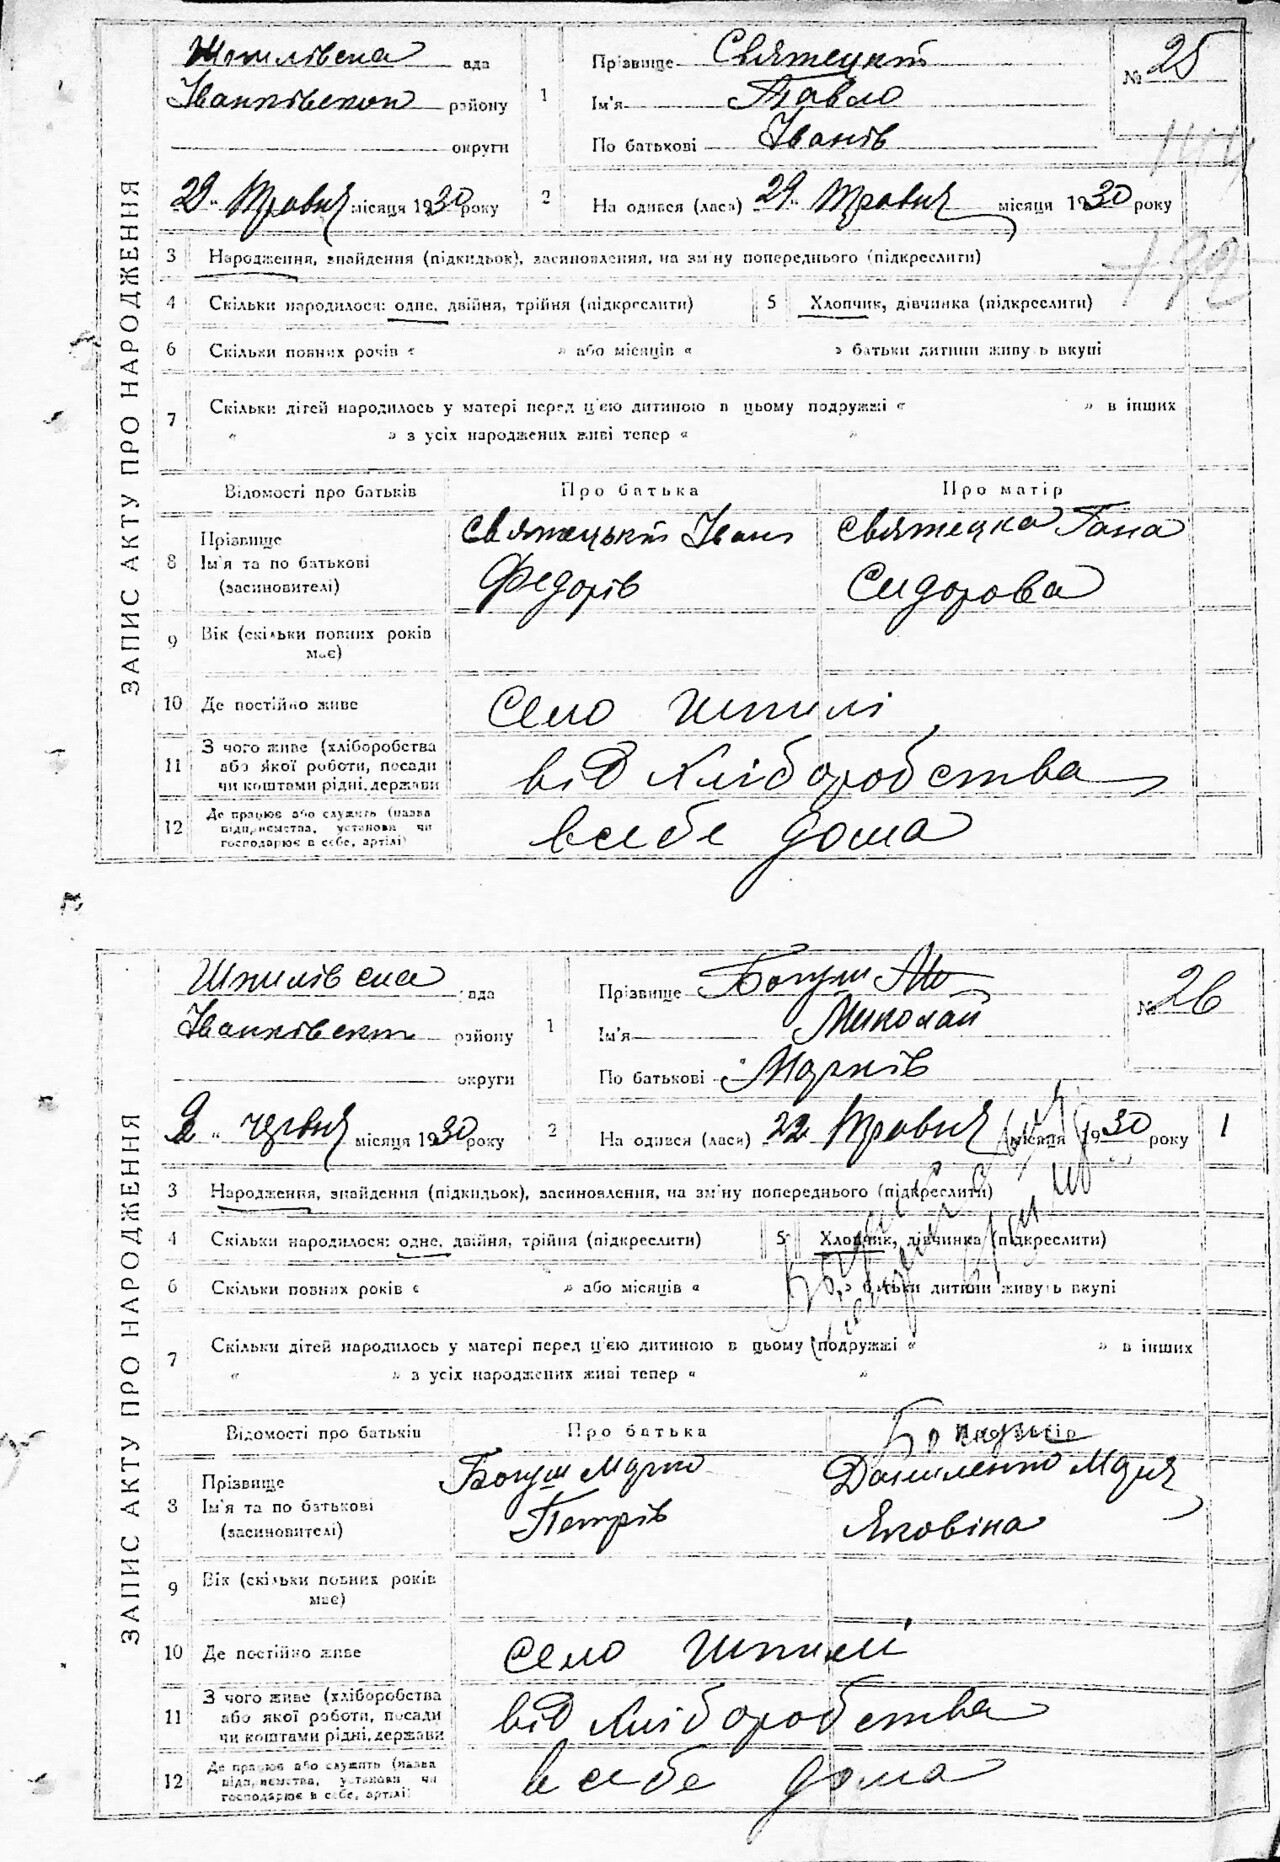 ЗАПИС АКТУ ПРО НАРОДЖЕННЯ
Шпилівська ада
Іванківського району
округи
1
Прізвище Святецький
Ім'я Павло
По батькові Іванів
№ 25
29 " Травня місяця 1930 року
2
На одився (лася) 29 " Травня місяця 1930 року
192
3 Народження, знайдення (підкидьок), засиновлення, на зміну попереднього (підкреслити)
4 Скільки народилося: одне, двійня, трійня (підкреслити)
5 Хлопчик, дівчинка (підкреслити)
6 Скільки повних рочів « » або місяців « » батьки дитини живуть вкупі
7 Скільки дітей народилось у матері перед ц'єю дитиною в цьому подружжі « » в інших
« » з усіх народжених живі тепер « »
Відомості про батьків Про батька Про матір
8 Прізвище
Ім'я та по батькові
(засиновителі)
Святецький Іван
Федорів
Святецка Гана
Сидорова
9 Вік (скільки повних років має)
10 Де постійно живе село Шпилі
11 З чого живе (хліборобства
або якої роботи, посади
чи коштами рідні, держави
від хліборобства
12 Де працює або служить (назва
підприємства, установи чи
господарює в себе, артілі)
в себе дома
ЗАПИС АКТУ ПРО НАРОДЖЕННЯ
Шпилівська ада
Іванківського району
округи
1
Прізвище Богуш
Ім'я Миколай
По батькові Марків
№ 26
2 " червня місяця 1930 року
2
На одився (лася) 22 Травня місяця 1930 року
1
3 Народження, знайдення (підкидьок), засиновлення, на зміну попереднього (підкреслити)
4 Скільки народилося: одне, двійня, трійня (підкреслити)
5 Хлопчик, дівчинка (підкреслити)
6 Скільки повних років « » або місяців « » батьки дитини живуть вкупі
7 Скільки дітей народилось у матері перед ц'єю дитиною в цьому подружжі « » в інших
« » з усіх народжених живі тепер « »
Відомості про батьків Про батька Про матір
8 Прізвище
Ім'я та по батькові
(засиновителі)
Богуш Марко
Петрів
Даниленко Марія
Яковівна
9 Вік (скільки повних років має)
10 Де постійно живе село Шпилі
11 З чого живе (хліборобства
або якої роботи, посади
чи коштами рідні, держави
від хліборобства
12 Де працює або служить (назва
підприємства, установи чи
господарює в себе, артілі)
в себе дома